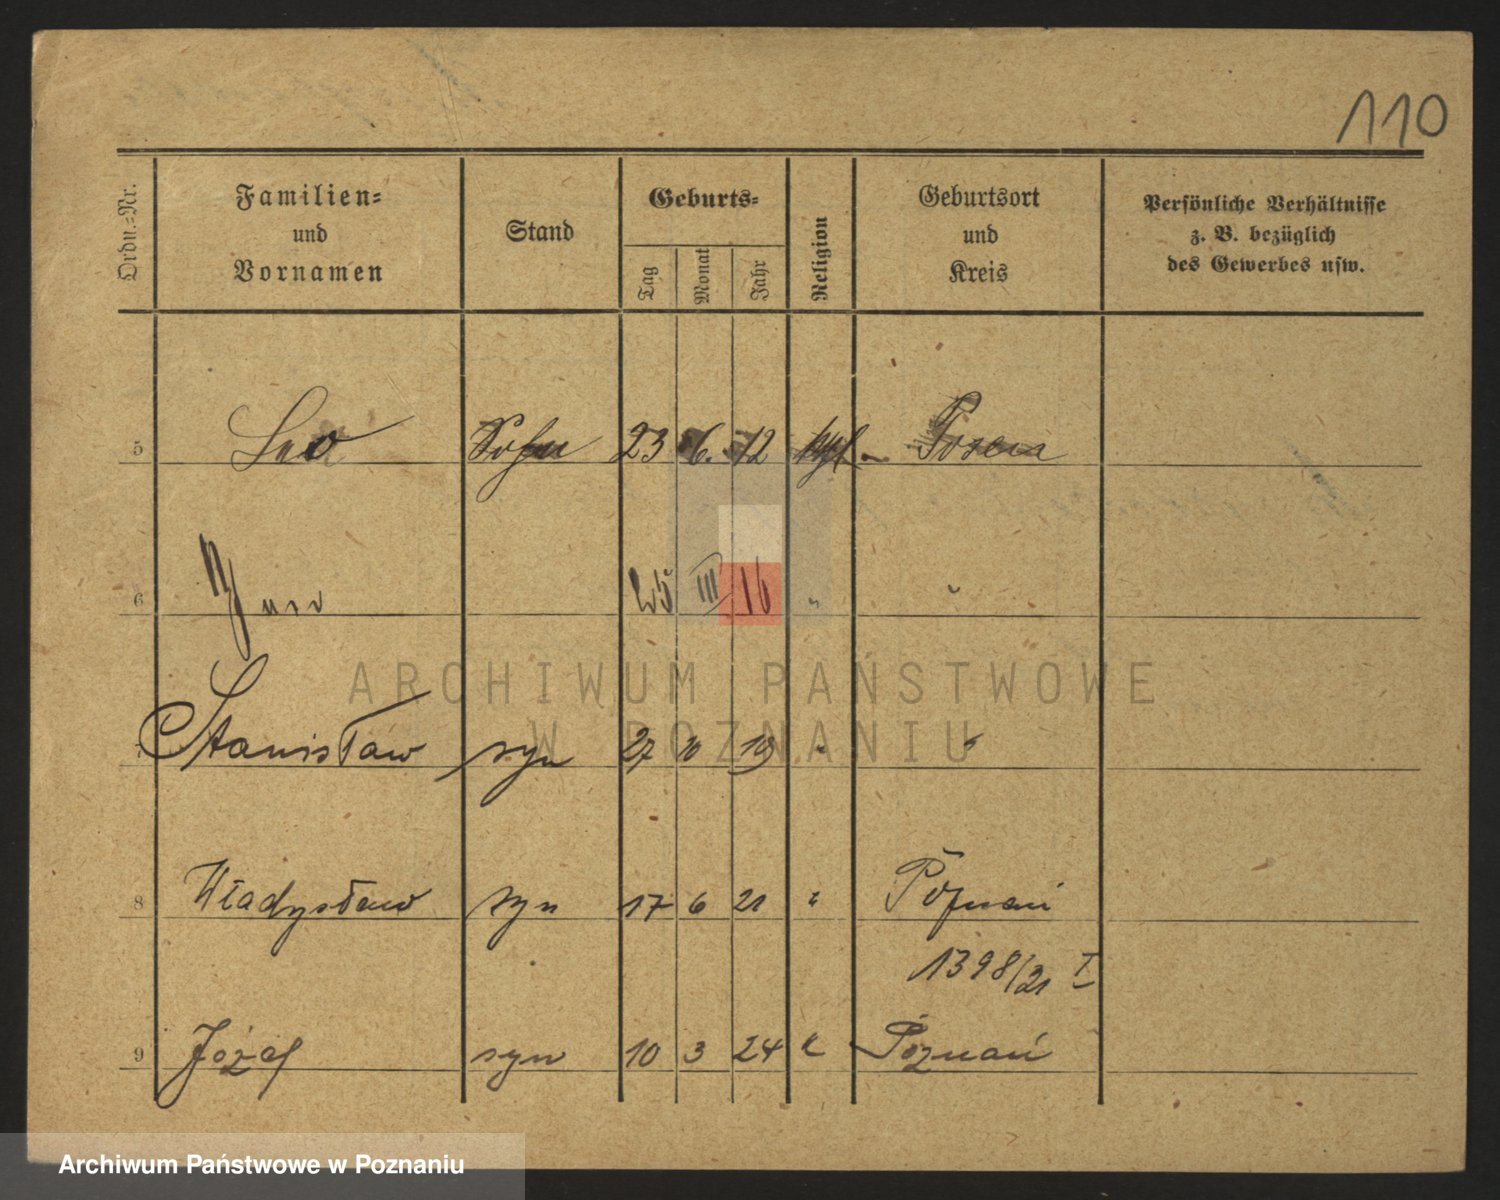 110
Ordn.=Nr.
Familien=
und
Vornamen
Stand
Geburts=
Tag
Monat
Jahr
Religion
Geburtsort
und
Kreis
Persönliche Verhältnisse
z. B. bezüglich
des Gewerbes usw.
5 Leo Sohn 23 6. 12 Posen
6 III 16 " "
ARCHIWUM PAŃSTWOWE
W POZNANIU
7 Stanisław syn 27 10 19 " "
8 Władysław syn 17 6 21 " Poznań
1398/21 I
9 Józef syn 10 3 24 k Poznań
Archiwum Państwowe w Poznaniu